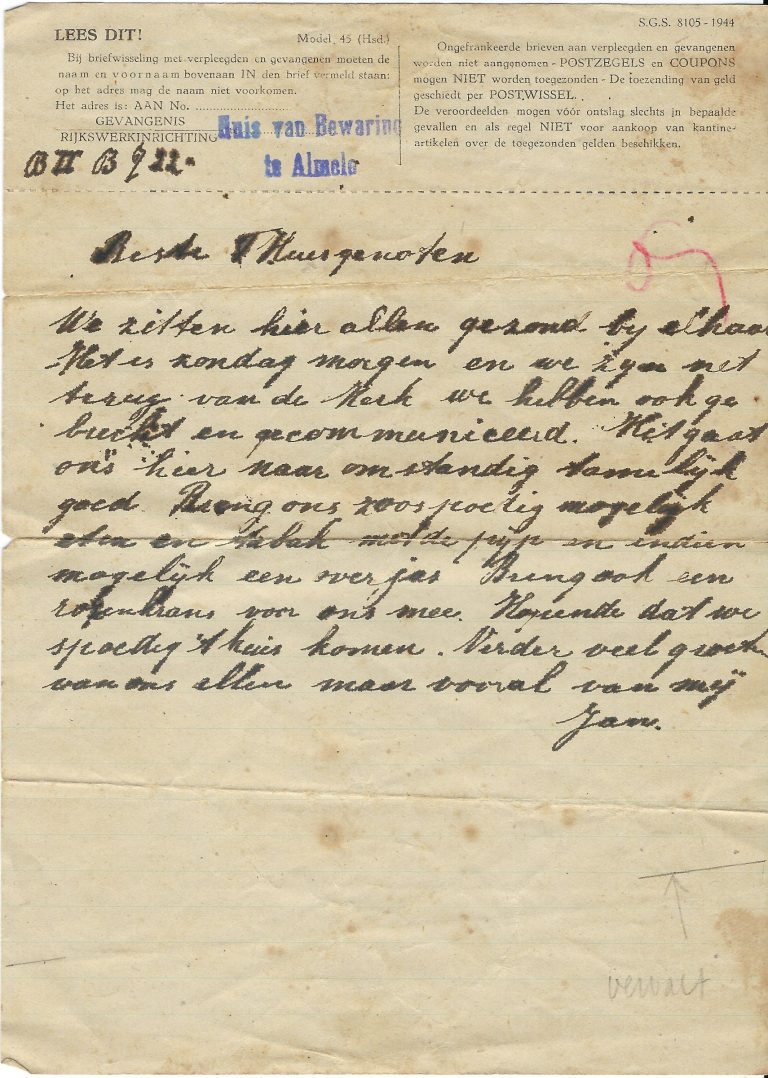 S.G.S. 8105 - 1944
LEES DIT!
Model 45 (Hsd.)
Bij briefwisseling met verpleegden en gevangenen moeten de
naam en voornaam bovenaan IN den brief vermeld staan:
op het adres mag de naam niet voorkomen.
Het adres is: AAN No. ........................
GEVANGENIS
RIJKSWERKINRICHTING
Huis van Bewaring
te Almelo
Ongefrankeerde brieven aan verpleegden en gevangenen
worden niet aangenomen - POSTZEGELS en COUPONS
mogen NIET worden toegezonden - De toezending van geld
geschiedt per POSTWISSEL.
De veroordeelden mogen vóór ontslag slechts in bepaalde
gevallen en als regel NIET voor aankoop van kantine-
artikelen over de toegezonden gelden beschikken.
B II B 9 22
Beste Huisgenoten
We zitten hier allen gezond by elkaar
Het is zondag morgen en we zyn net
terug van de Kerk we hebben ook ge
biecht en gecommuniceerd. Hetgaat
ons hier naar omstandig tamelijk
goed Breng ons zoospoedig mogelijk
eten en tabak met de pijp en indien
mogelijk een overjas Breng ook een
rozenkrans voor ons mee. Hopende dat we
spoedig 't huis komen. Verder veel groeten
van ons allen maar vooral van mij
Jan.